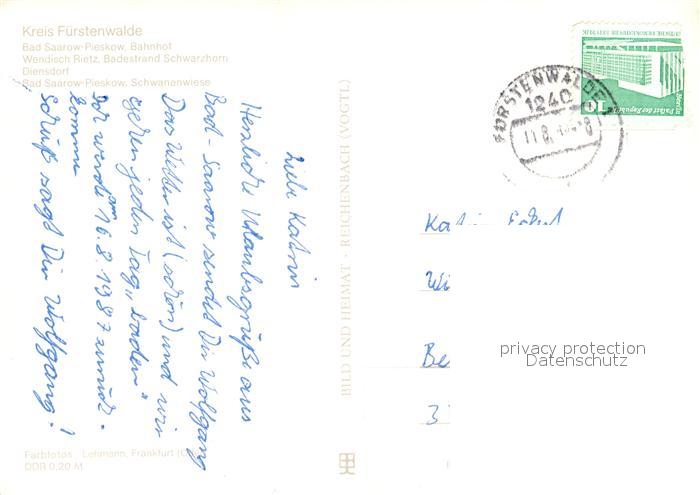 Kreis Fürstenwalde
Bad Saarow-Pieskow, Bahnhof
Wendisch Rietz, Badestrand Schwarzhorn
Diensdorf
Bad Saarow-Pieskow, Schwanenwiese
Liebe Katrin
Herzliche Urlaubsgrüße aus
Bad-Saarow sendet Dir Wolfgang
Das Wetter ist (schön) und wir
gehen jeden Tag „baden“
wir werden am 16.8.1987 zurück-
kommen
Tschüß sagt Dir Wolfgang!
BILD UND HEIMAT · REICHENBACH (VOGTL)
Farbfotos: Lehmann, Frankfurt
DDR 0,20 M
FÜRSTENWALDE
1240
11.8.
DEUTSCHE DEMOKRATISCHE REPUBLIK
Berlin
Palast der Republik
10
Ka
Wi
Be
3
privacy protection
Datenschutz